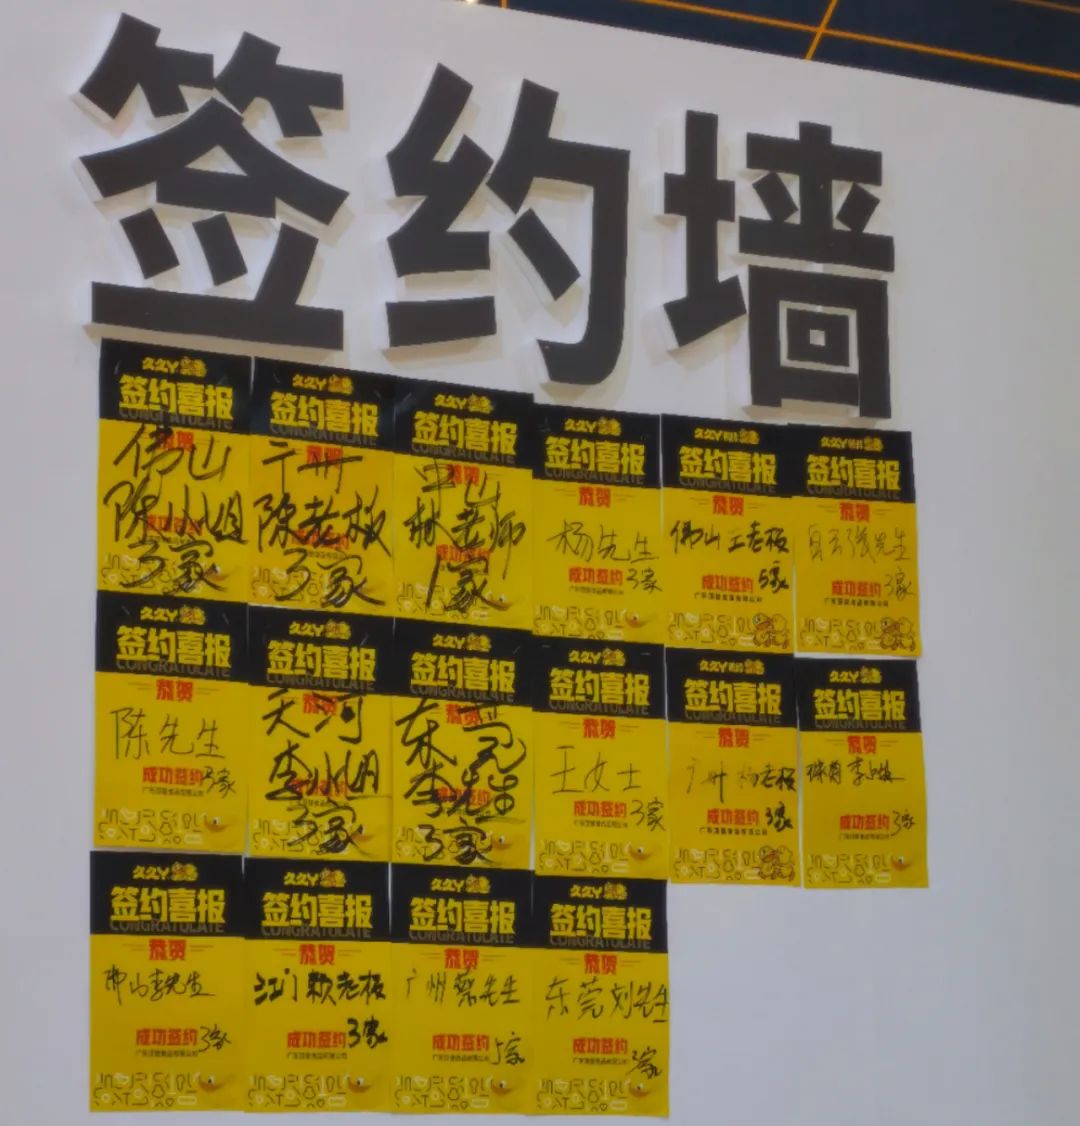 签约墙
久久丫
签约喜报
CONGRATULATE
恭贺
佛山
陈小姐
成功签约
3家
久久丫
签约喜报
CONGRATULATE
恭贺
广州
陈老板
3家
久久丫
签约喜报
CONGRATULATE
恭贺
中山
林老师
成功签约
1家
久久丫
签约喜报
CONGRATULATE
恭贺
杨先生
成功签约 3家
久久丫
签约喜报
CONGRATULATE
恭贺
佛山王老板
成功签约 5家
久久丫
签约喜报
CONGRATULATE
恭贺
白云张先生
成功签约 3家
久久丫
签约喜报
CONGRATULATE
恭贺
陈先生
成功签约 3家
久久丫
签约喜报
CONGRATULATE
恭贺
天河
李小姐
3家
久久丫
签约喜报
CONGRATULATE
恭贺
东莞
李先生
3家
久久丫
签约喜报
CONGRATULATE
恭贺
王女士
成功签约 3家
久久丫
签约喜报
CONGRATULATE
恭贺
广州杨老板
成功签约 3家
久久丫
签约喜报
CONGRATULATE
恭贺
李
成功签约 3家
久久丫
签约喜报
CONGRATULATE
恭贺
佛山李先生
成功签约 3家
久久丫
签约喜报
CONGRATULATE
恭贺
江门颖老板
成功签约 3家
久久丫
签约喜报
CONGRATULATE
恭贺
广州蔡先生
成功签约 5家
久久丫
签约喜报
CONGRATULATE
恭贺
东莞刘先生
成功签约 3家